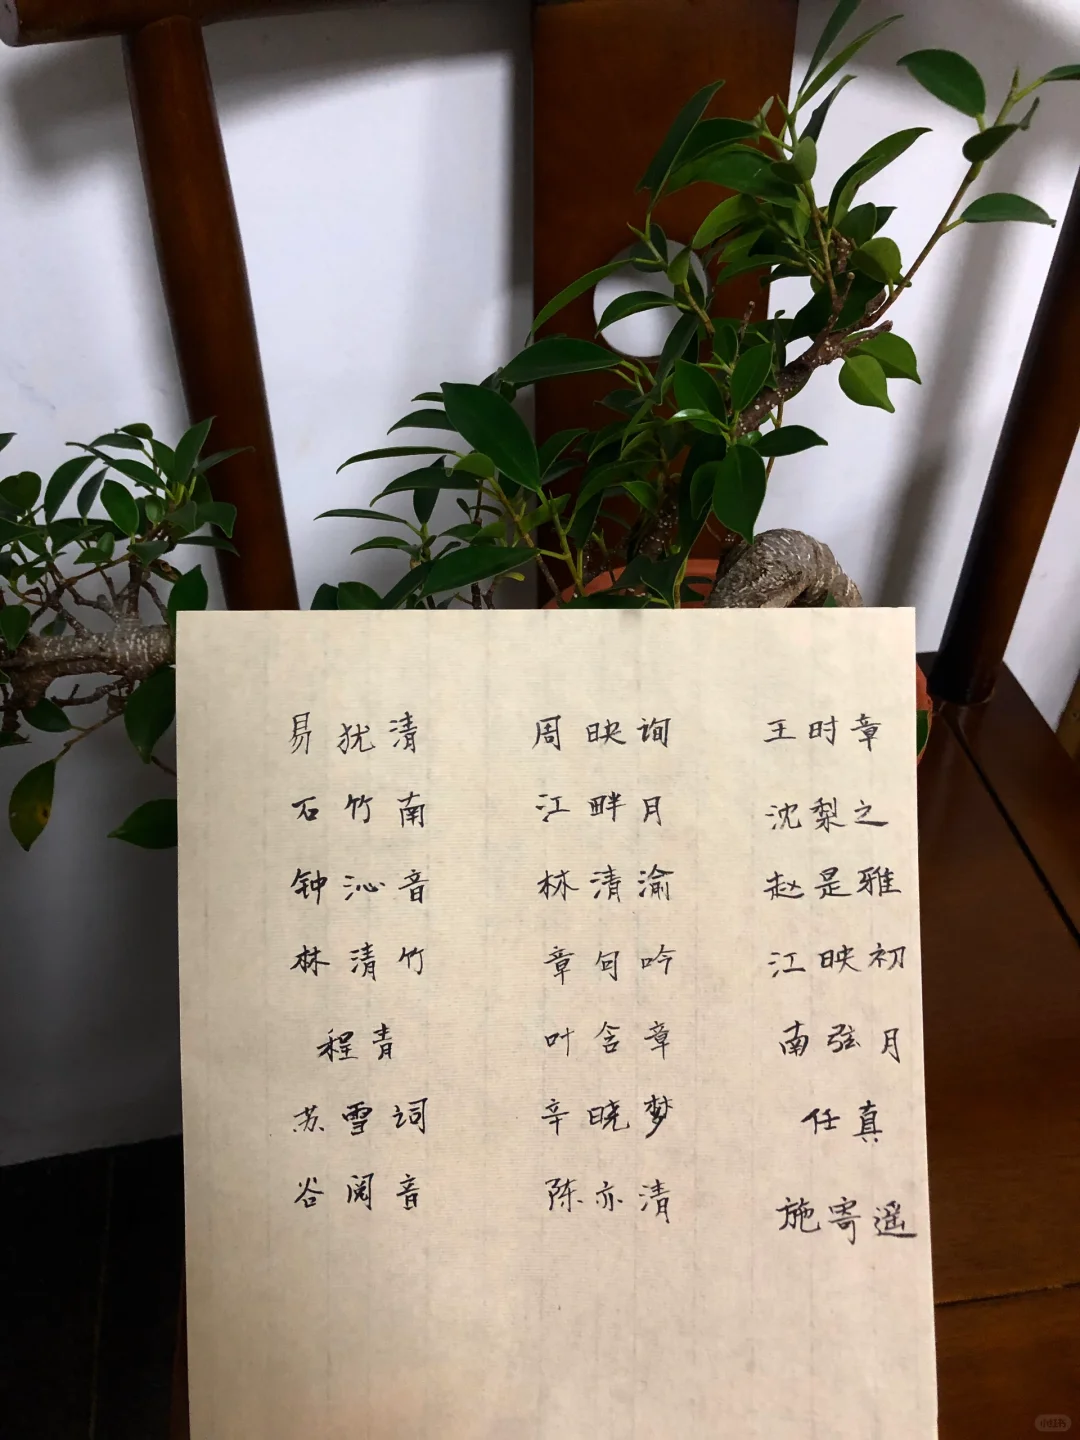 易犹清 周映询 王时章
石竹南 江畔月 沈梨之
钟沁音 林清渝 赵是雅
林清竹 章句吟 江映初
程青 叶含章 南弦月
苏雪词 辛晓梦 任真
谷阅音 陈亦清 施寄遥
小红书